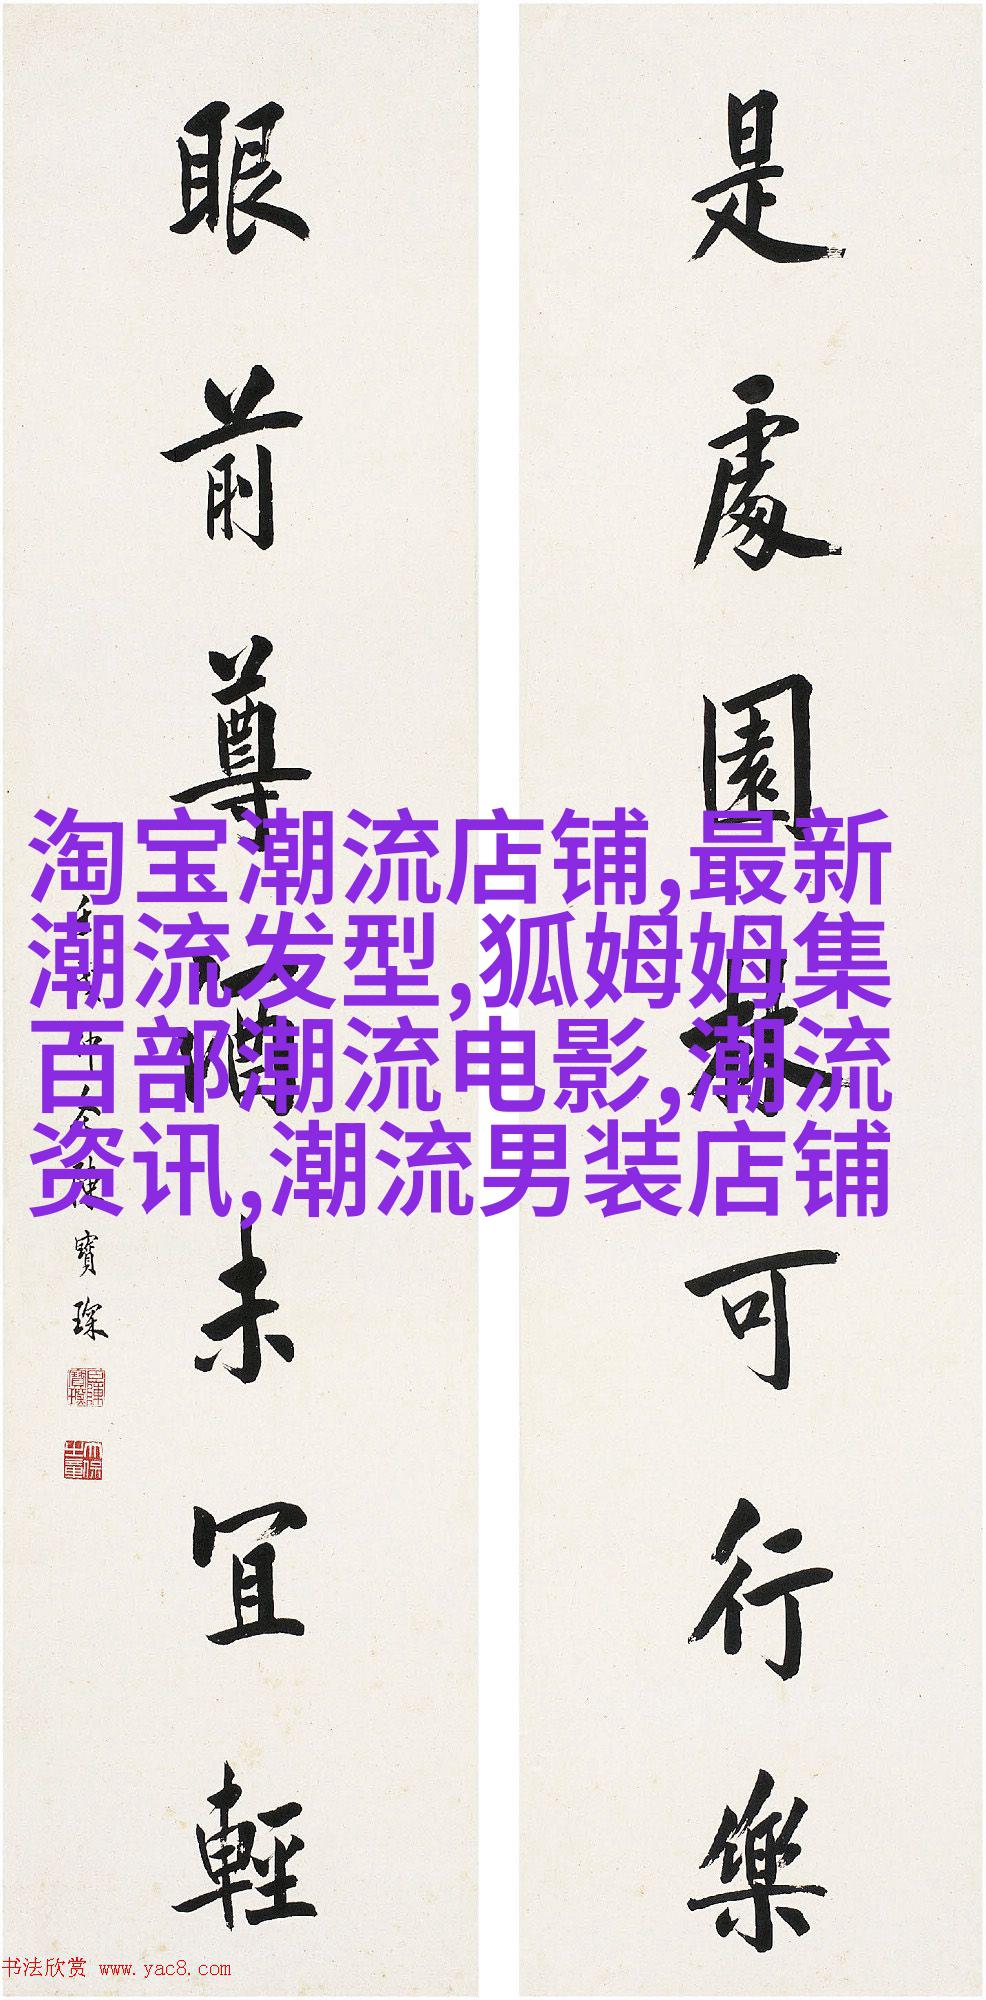 是處園林可行樂
眼前尊酒未宜輕
壬戌仲冬陳寶琛
淘宝潮流店铺,最新
潮流发型,狐姆姆集
百部潮流电影,潮流
资讯,潮流男装店铺
书法欣赏 www.yac8.com